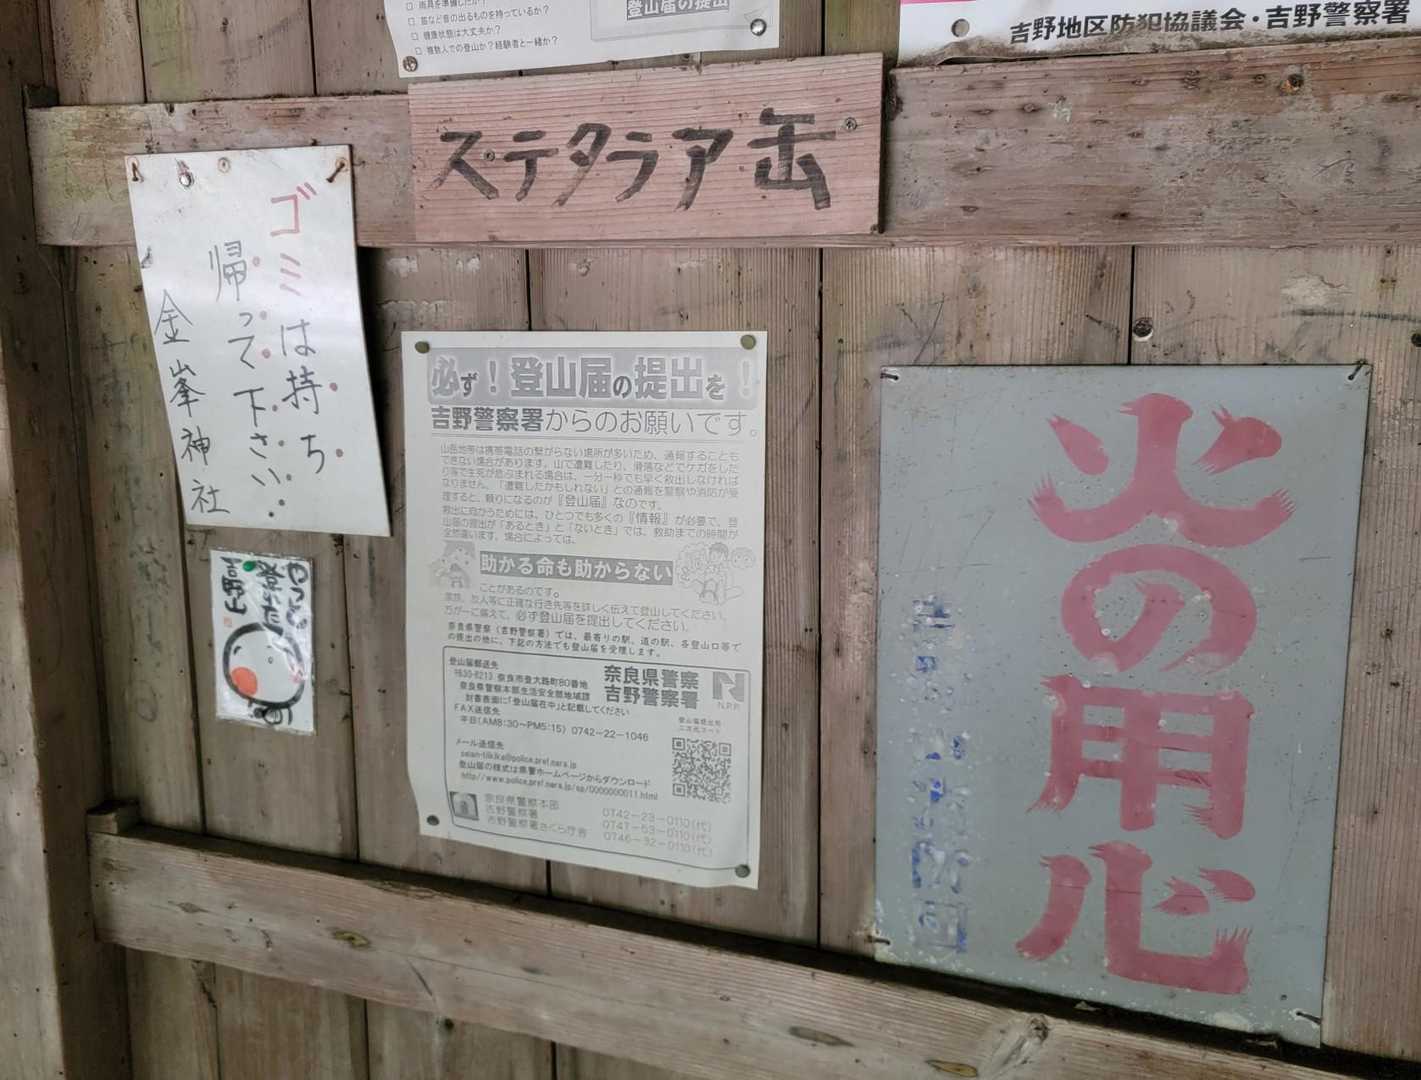 □ 雨具を準備したか？
□ 笛など音の出るものを持っているか？
□ 健康状態は大丈夫か？
□ 複数人での登山か？経験者と一緒か？
登山届の提出
吉野地区防犯協議会・吉野警察署
ステタラア缶
ゴミは持ち
帰って下さい
金峯神社
吉野山
必ず！登山届の提出を！
吉野警察署からのお願いです。
山岳地帯は携帯電話の繋がらない場所が多いため、通報することも
できない場合があります。山で遭難したり、滑落などでケガをした
り等で生死が危ぶまれる場合は、一分一秒でも早く救出しなければ
なりません。「遭難したかもしれない」との通報を警察や消防が受
理すると、頼りになるのが『登山届』なのです。
救出に向かうためには、ひとつでも多くの『情報』が必要で、登
山届の提出が「あるとき」と「ないとき」では、救助までの時間が
全然違います。場合によっては、
助かる命も助からない
ことがあるのです。
家族、友人等に正確な行き先等を詳しく伝えて登山してください。
万が一に備えて、必ず登山届を提出してください。
奈良県警察（吉野警察署）では、最寄りの駅、道の駅、各登山口等で
の提出の他に、下記の方法でも登山届を受理します。
登山届郵送先
〒630-8213 奈良市登大路町80番地
奈良県警察本部生活安全部地域課
封書表面に「登山届在中」と記載してください
FAX送信先
平日(AM8:30～PM5:15) 0742-22-1046
メール送信先
登山届の様式は県警ホームページからダウンロード
http://www.police.pref.nara.jp/sp/0000000011.html
奈良県警察
吉野警察署
N.P.P.
登山届提出用
二次元コード
奈良県警察本部 0742-23-0110(代)
吉野警察署 0747-53-0110(代)
吉野警察署さくら庁舎 0746-32-0110(代)
火の用心